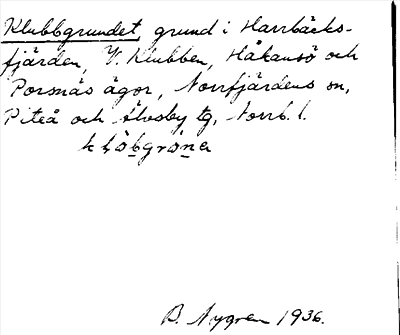 Klubbgrundet, grund i Harrbäcks-
fjärden, V. Klubben, Håkansö och
Porsnäs ägor, Norrfjärdens sn,
Piteå och Älvsby tg, Norrb. l.
B. Nygren 1936.